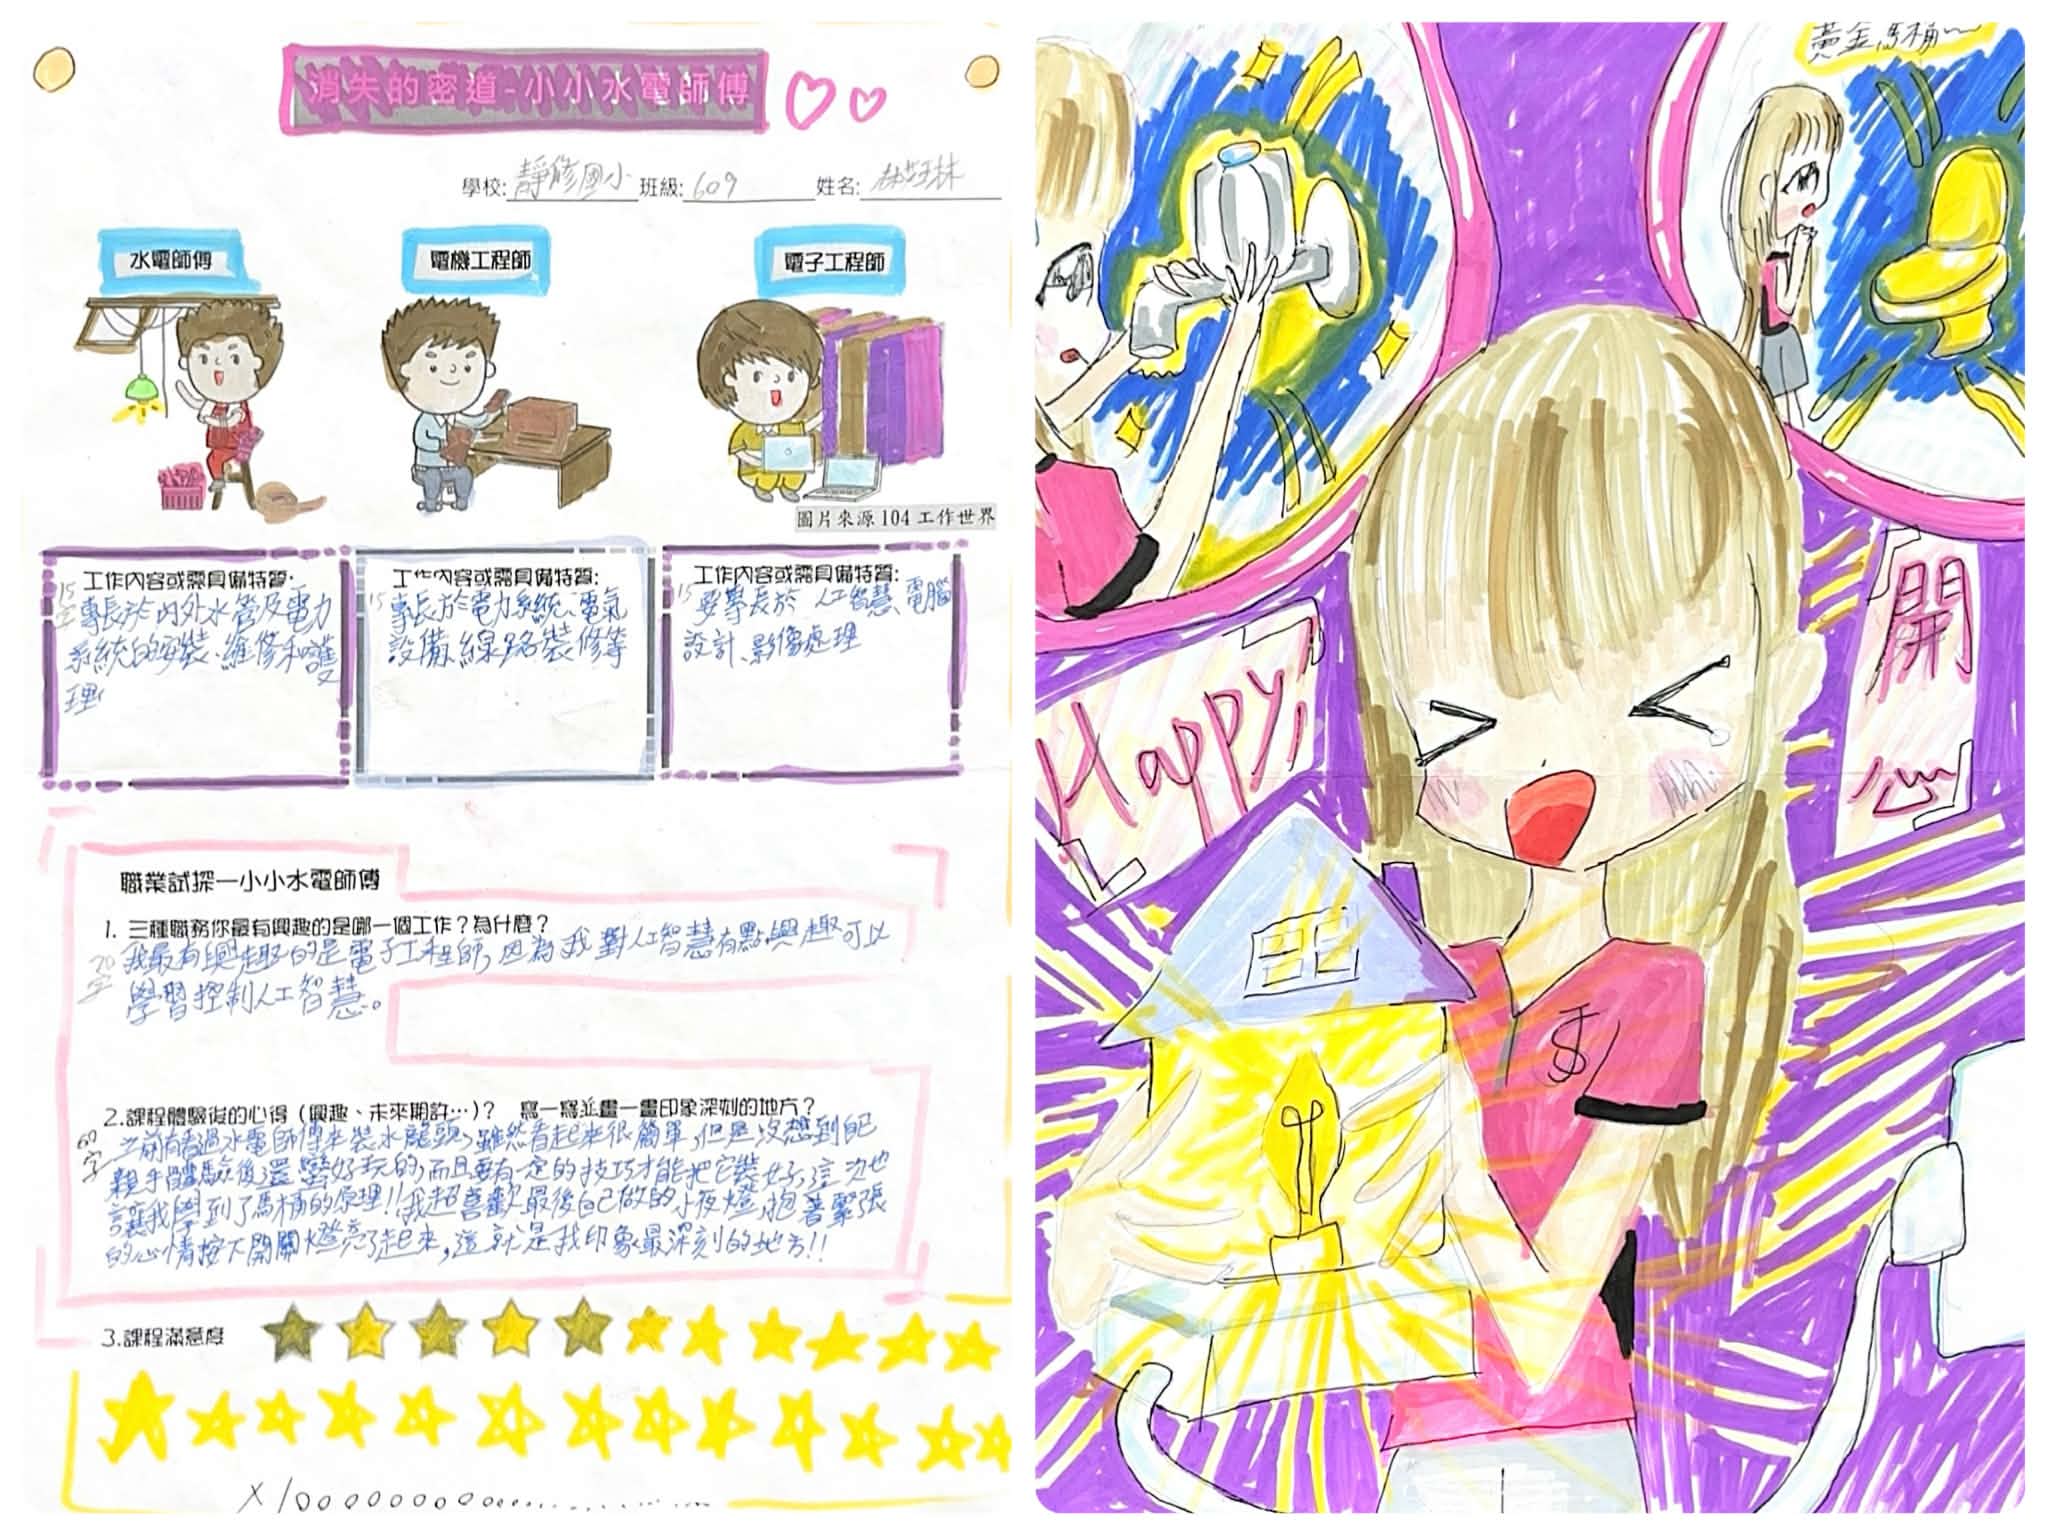 消失的密道-小小水電師傅
學校:靜修國小 班級:609 姓名:
水電師傅
電機工程師
電子工程師
圖片來源 104 工作世界
工作內容或需具備特質:
15
字
專長於內外水管及電力
系統的安裝、維修和護
理
工作內容或需具備特質:
15
專長於電力系統、電氣
設備、線路裝修等
工作內容或需具備特質:
15
要專長於 人工智慧、電腦
設計、影像處理
職業試探—小小水電師傅
1. 三種職務你最有興趣的是哪一個工作？為什麼？
20
字
我最有興趣的是電子工程師，因為我對人工智慧有點興趣可以
學習控制人工智慧。
2.課程體驗後的心得（興趣、未來期許…）？ 寫一寫並畫一畫印象深刻的地方？
60
字
之前有看過水電師傅來裝水龍頭，雖然看起來很簡單，但是沒想到自己
親手體驗後還蠻好玩的，而且要有一定的技巧才能把它裝好，這次也
讓我學到了馬桶的原理!!我超喜歡最後自己做的小夜燈，抱著緊張
的心情按下開關燈亮了起來，這就是我印象最深刻的地方!!
3.課程滿意度
黃金馬桶~~
Happy,
開
心